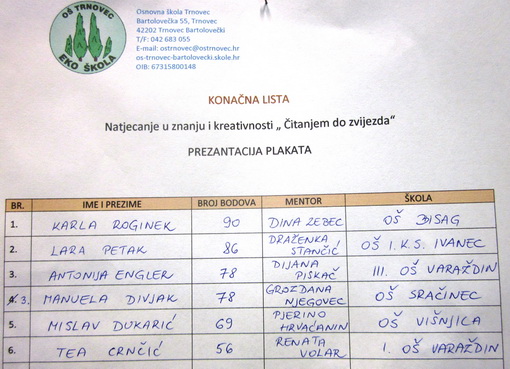 OŠ TRNOVEC
EKO ŠKOLA
Osnovna škola Trnovec
Bartolovečka 55, Trnovec
42202 Trnovec Bartolovečki
T/F: 042 683 055
E-mail: ostrnovec@ostrnovec.hr
os-trnovec-bartolovecki.skole.hr
OIB: 67315800148
KONAČNA LISTA
Natjecanje u znanju i kreativnosti „ Čitanjem do zvijezda“
PREZANTACIJA PLAKATA
BR. IME I PREZIME BROJ BODOVA MENTOR ŠKOLA
1. KARLA ROGINEK 90 DINA ZEBEC OŠ BISAG
2. LARA PETAK 86 DRAŽENKA STANČIĆ OŠ I.K.S. IVANEC
3. ANTONIJA ENGLER 78 DIJANA PISKAČ III. OŠ VARAŽDIN
4. 3. MANUELA DIVJAK 78 GROZDANA NJEGOVEC OŠ SRAČINEC
5. MISLAV DUKARIĆ 69 PJERINO HRVAĆANIN OŠ VIŠNJICA
6. TEA CRNČIĆ 56 RENATA VOLAR I. OŠ VARAŽDIN